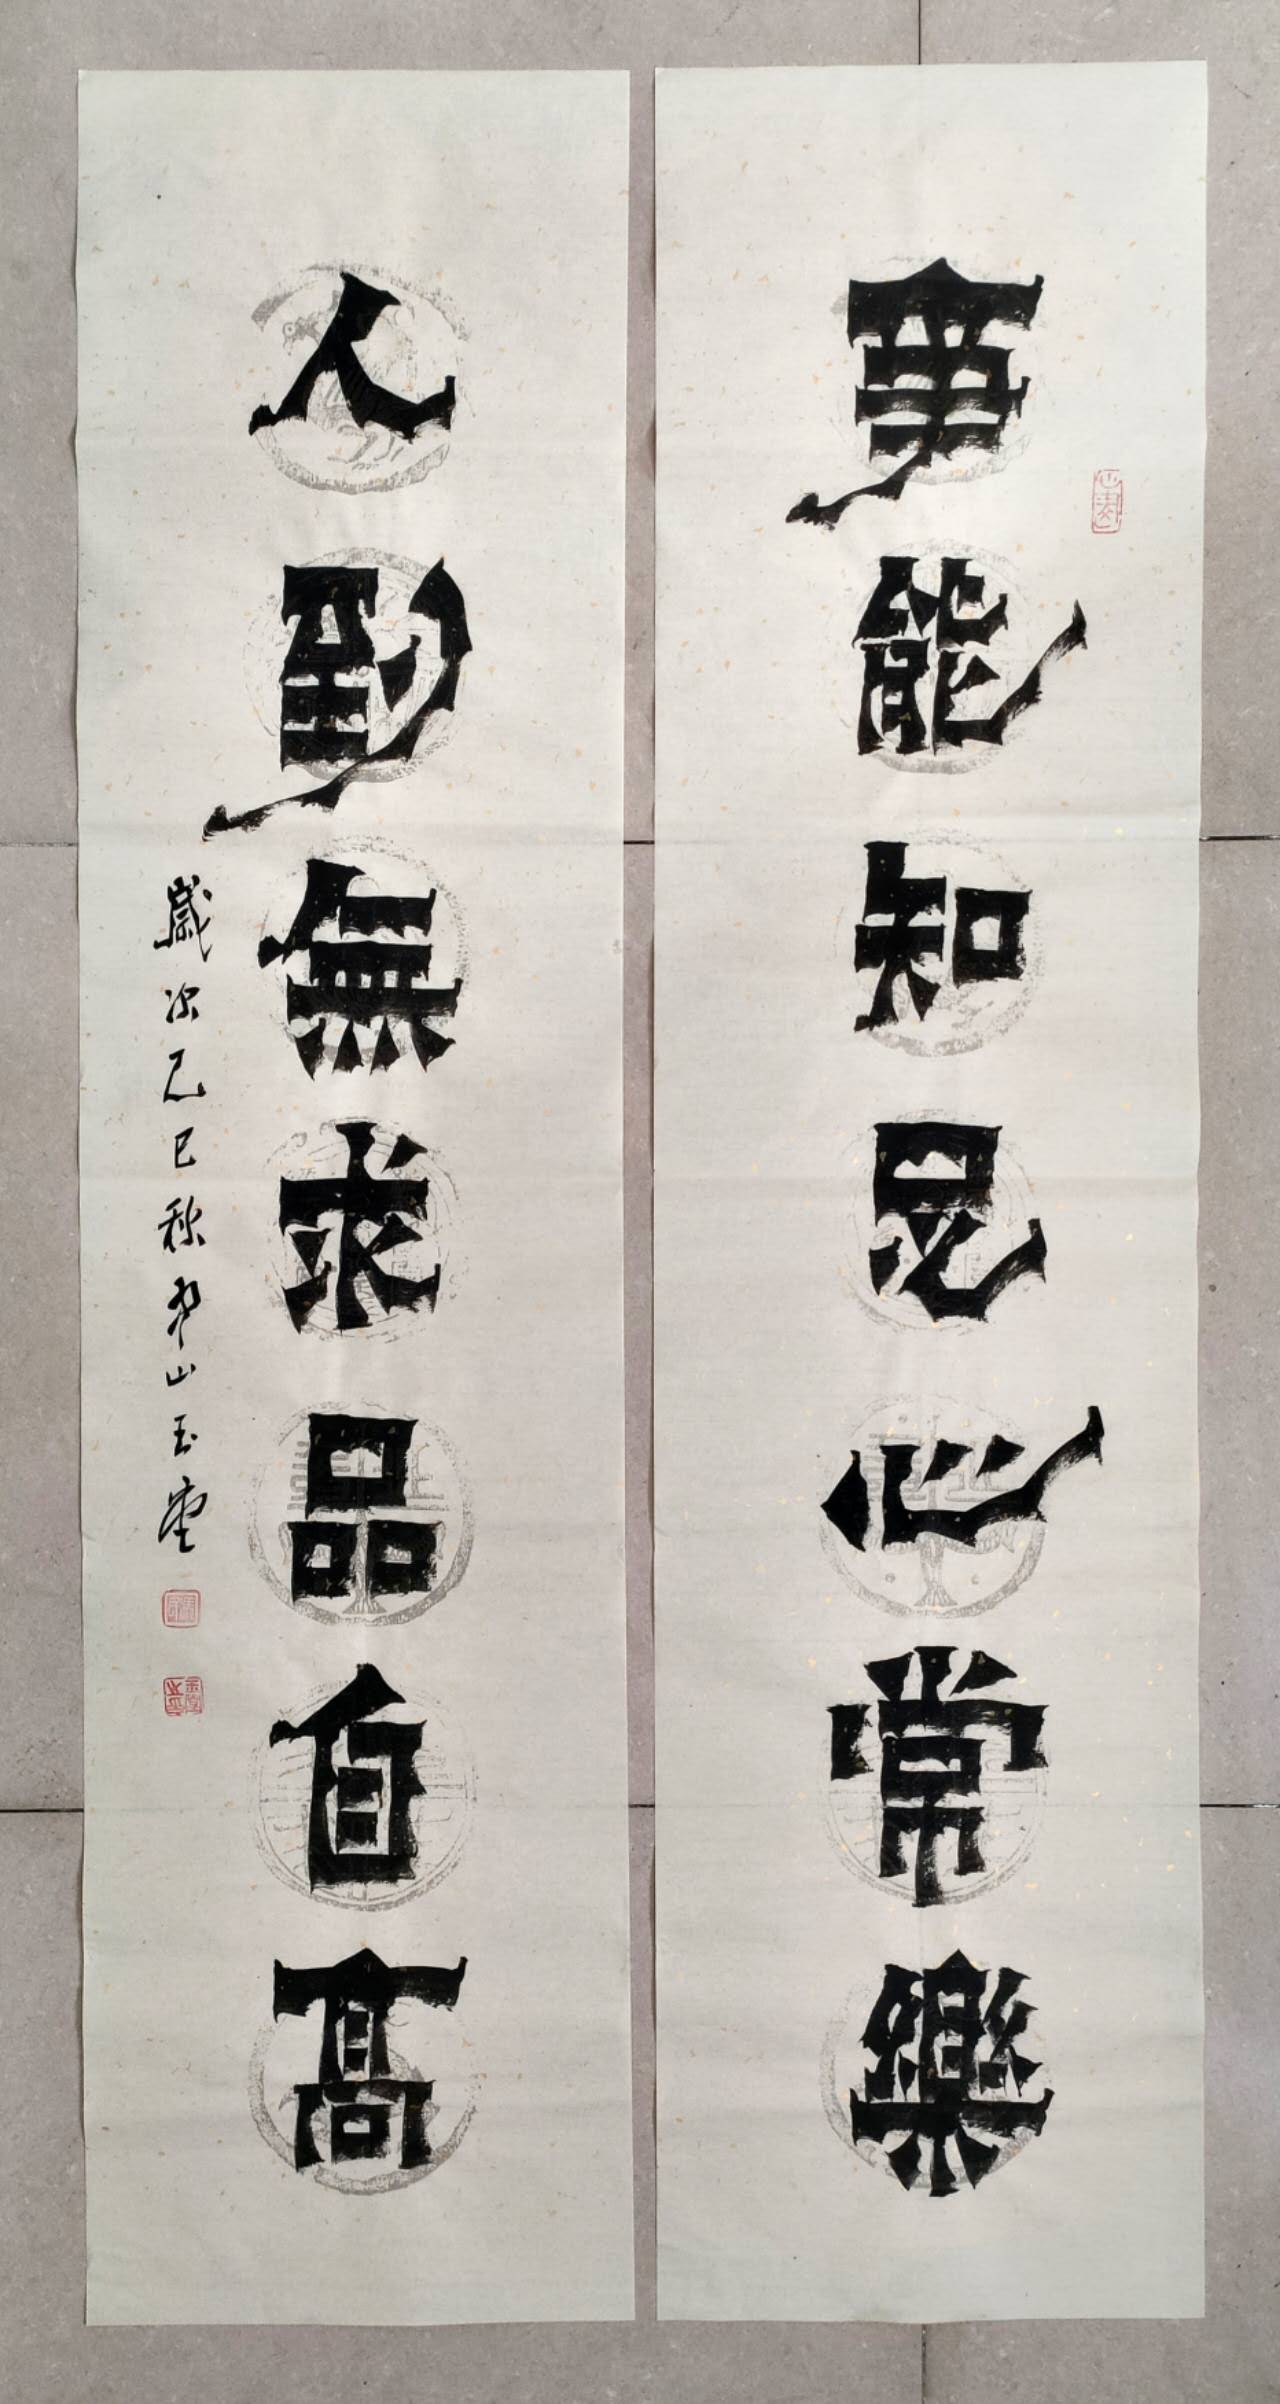 事能知足心常樂
人到無求品自高
歲次乙巳秋山玉堂